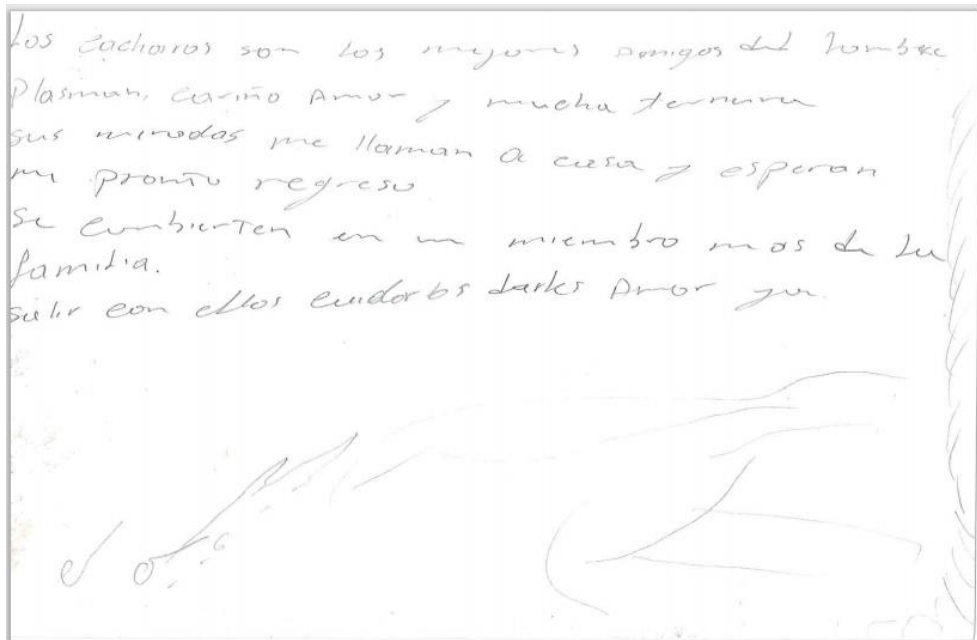 Los cachorros son los mejores amigos del hombre
Plasman, cariño Amor y mucha ternura
sus miradas me llaman a casa y esperan
mi pronto regreso
Se combierten en un miembro mas de la
familia.
salir con ellos cuidarlos darles Amor